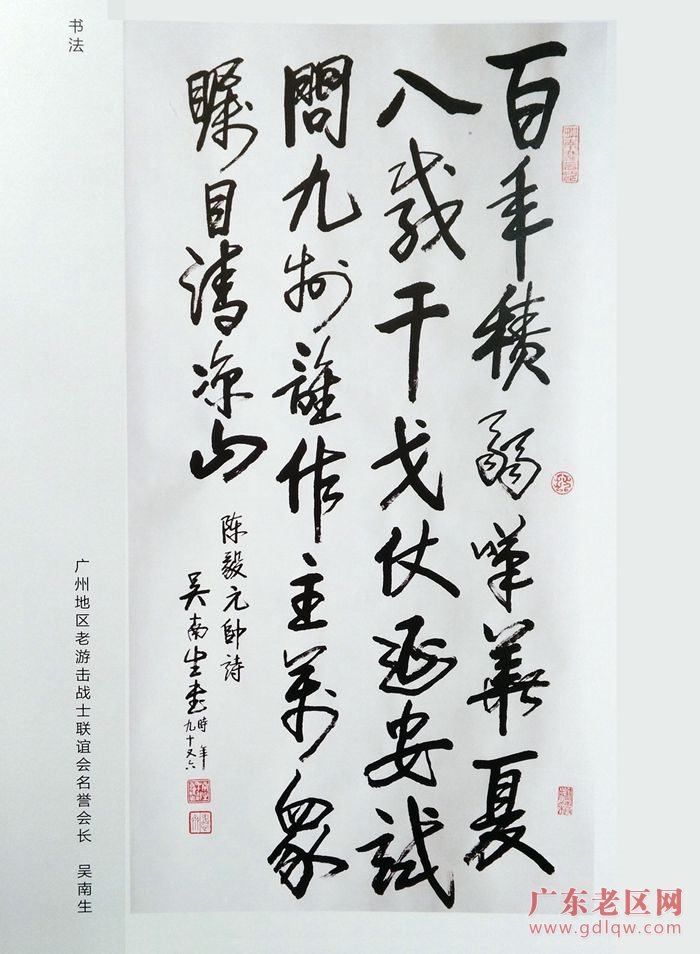 百年積弱嘆華夏
八載干戈仗延安試
問九州誰作主萬衆
瞩目清凉山
陈毅元帥詩
吴南生書
時年
九十又六
书法
广州地区老游击战士联谊会名誉会长 吴南生
广东老区网
www.gdlqw.com